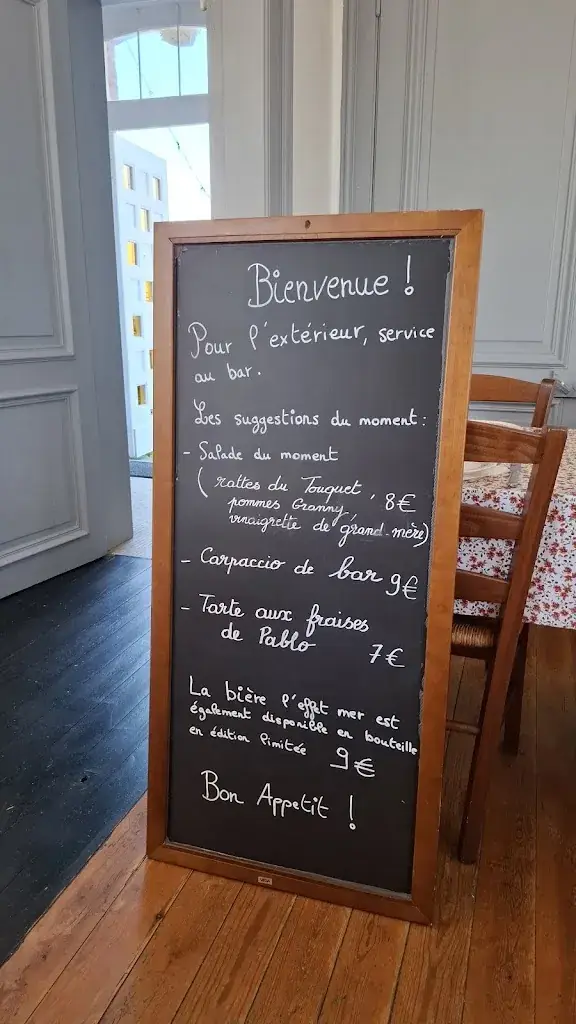 Bienvenue !
Pour l'extérieur, service
au bar.
Les suggestions du moment :
- Salade du moment
( rattes du Touquet, 8€
pommes Granny,
vinaigrette de grand-mère)
- Carpaccio de bar 9€
- Tarte aux fraises
de Pablo 7€
La bière l'effet mer est
également disponible en bouteille
en édition limitée 9€
Bon Appetit !